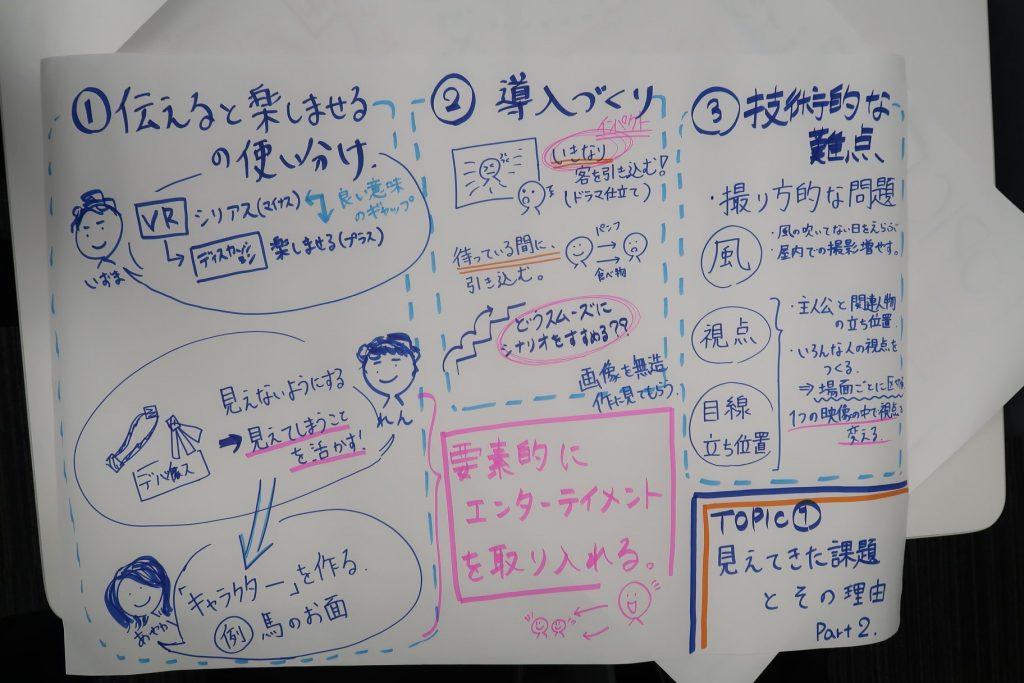 ① 伝えると楽しませる
の使い分け.
VR シリアス(マイナス)
良い意味
のギャップ
ディスカッション 楽しませる(プラス)
いおま
見えないようにする
➡ 見えてしまうこと
を活かす!
れん
デバイス
「キャラクター」を作る.
例 馬のお面
あやか
② 導入づくり
インパクト
いきなり
客を引き込む!
(ドラマ仕立て)
待っている間に、
引き込む。
パンフ
食べ物
どうスムーズに
シナリオをすすめる??
画像を無造
作に見てもらう.
要素的に
エンターテイメント
を取り入れる。
③ 技術的な
難点、
・撮り方的な問題
風
・風の吹いてない日をえらぶ
・屋内での撮影増やす。
視点
・主人公と関連人物
の立ち位置.
・いろんな人の視点を
つくる.
⇒ 場面ごとに
1つの映像の中で視点を
変える.
目線
立ち位置
TOPIC
見えてきた課題
とその理由
Part 2.